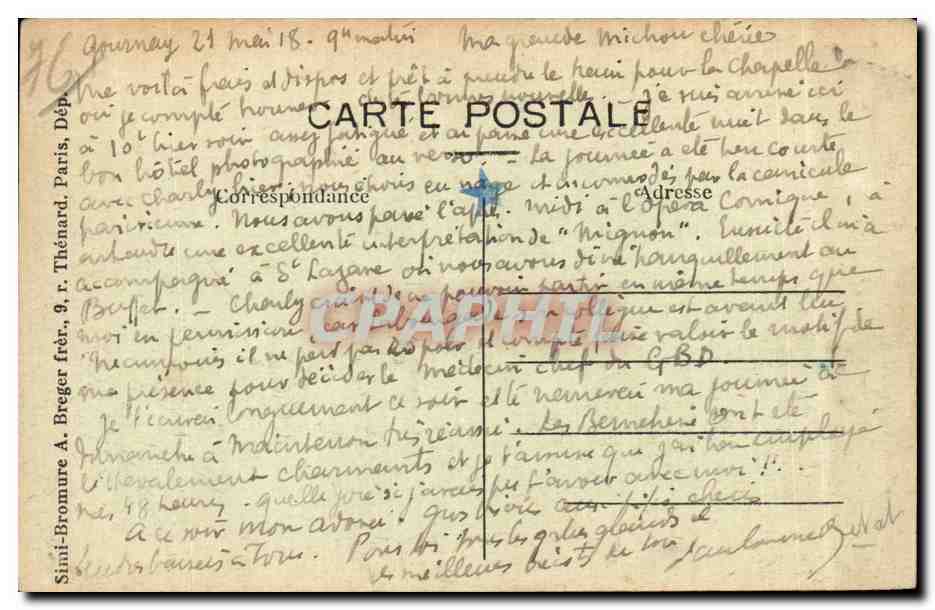 Gournay 21 mai 18. 9h matin Ma grande Michou chérie
Me voilà frais et dispos et prêt à prendre le train pour la Chapelle
où je compte trouver de tes bonnes nouvelles. Je suis arrivé ici
CARTE POSTALE
à 10h hier soir assez fatigué et ai passé une excellente nuit dans le
bon hôtel photographié au verso. - La journée a été bien courte
avec Charly hier, nous étions en nage et incommodés par la canicule
Correspondance
Adresse
parisienne. Nous avons passé l'après-midi à l'Opéra Comique, à
entendre une excellente interprétation de "Mignon". Ensuite il m'a
accompagné à St Lazare où nous avons dîné tranquillement au
Buffet. - Charly craint de ne pouvoir partir en même temps que
moi en permission car son collègue est avant lui
CPAPHIL
Néanmoins il ne perd pas espoir et compte faire valoir le motif de
ma présence pour décider le Médecin chef du GBD.
Je t'écrirai longuement ce soir et te remercie ma journée de
dimanche à Maintenon très réussie. Les ont été
charmants et je t'assure que j'ai bien employé
mes 48 heures. Quelle joie si j'avais pu t'avoir avec moi !!
A ce soir mon adorée. Gros aux chéris
tendres baisers à tous. Pour toi tous les plus grands et
les meilleurs de ton
Simi-Bromure A. Breger frèr., 9, r. Thénard, Paris, Dép.